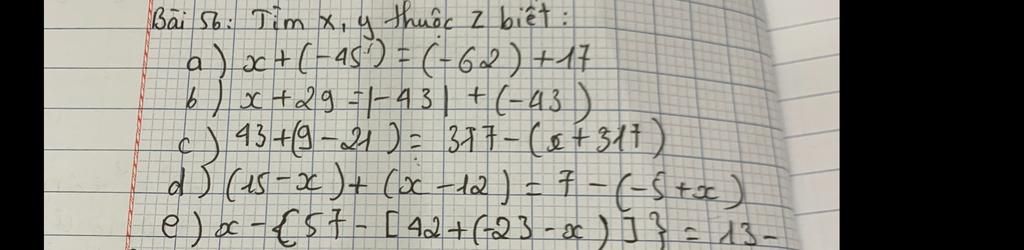 Bài 56: Tìm x, y thuộc Z biết:
a) x + (-45) = (-62) + 17
b) x + 29 = |-43| + (-43)
c) 43 + (9 - 21) = 317 - (x + 317)
d) (15 - x) + (x - 12) = 7 - (-5 + x)
e) x - {57 - [42 + (-23 - x)]} = 13 -